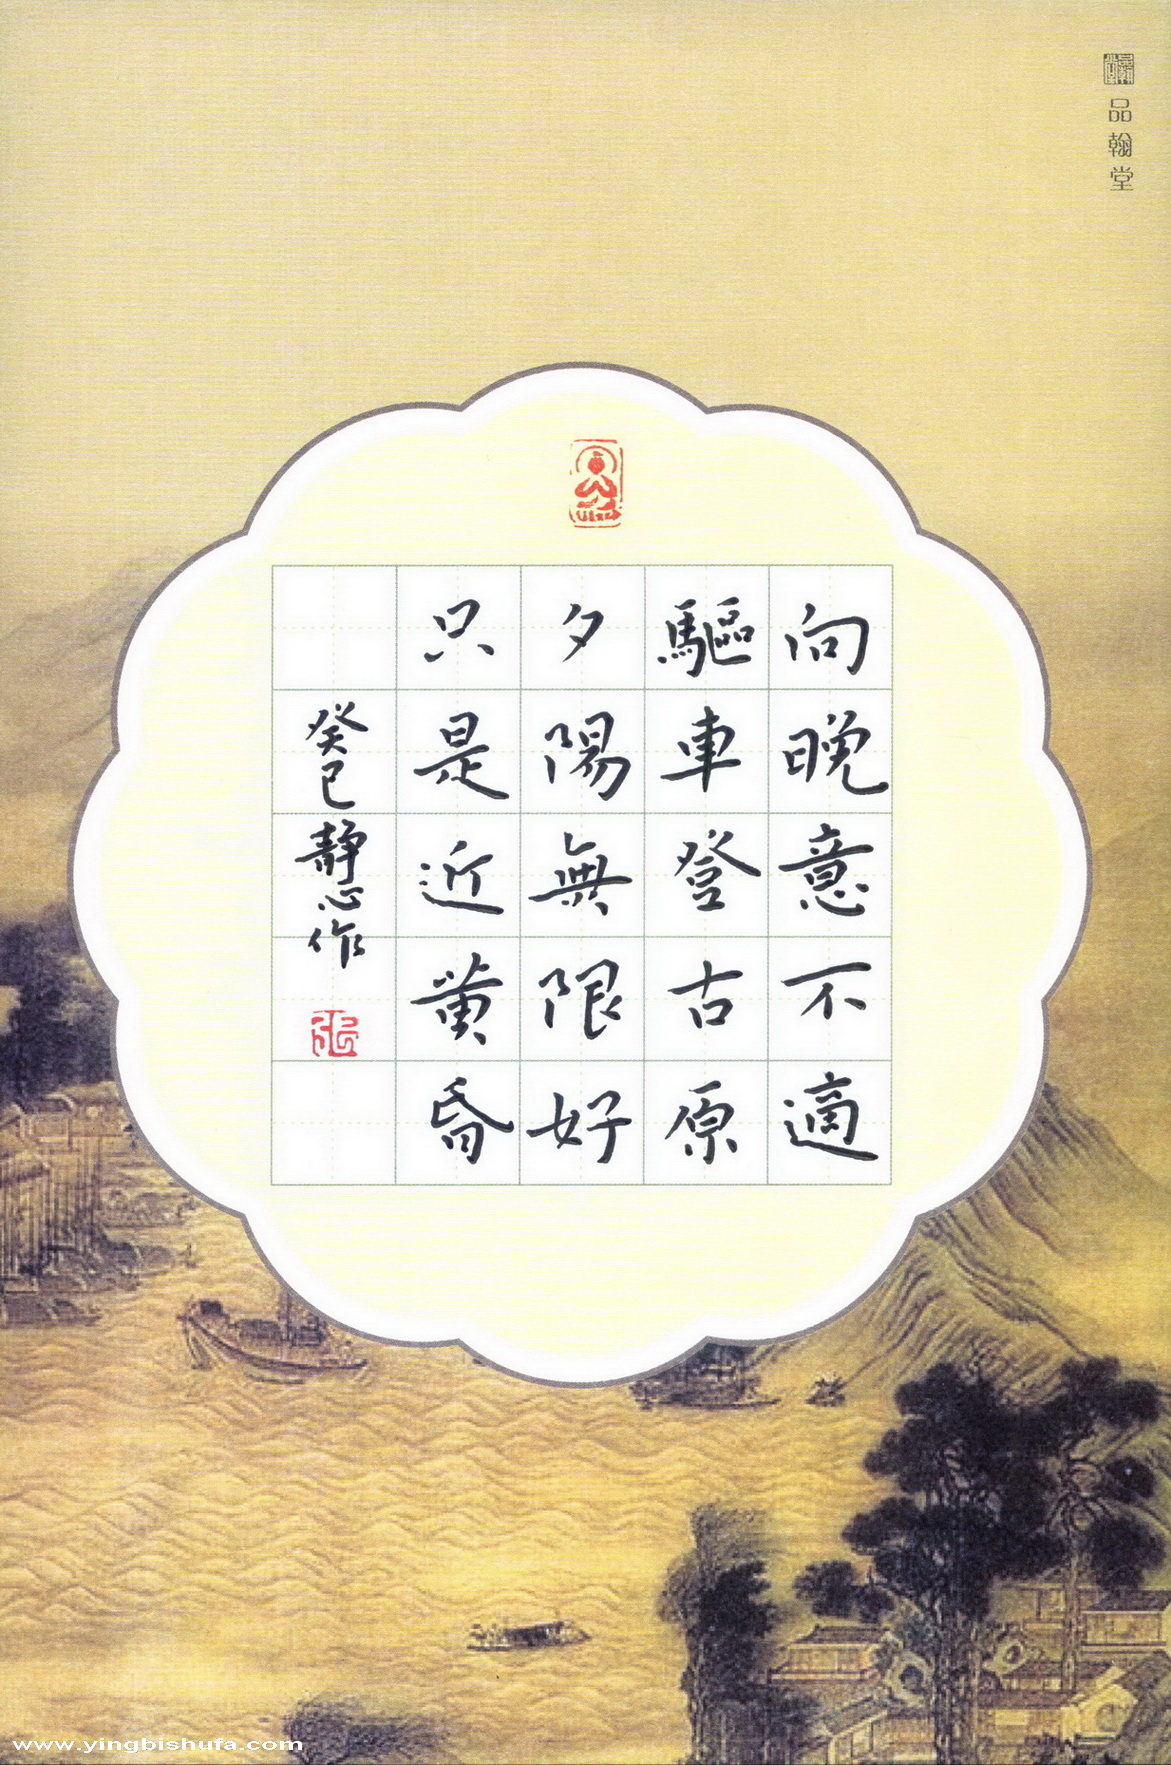 品翰堂
向晚意不適
驅車登古原
夕陽無限好
只是近黄昏
癸巳靜心作
www.yingbishufa.com